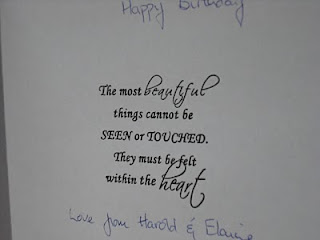 Happy Birthday
The most beautiful
things cannot be
SEEN or TOUCHED.
They must be felt
within the heart
Love from Harold & Elaine